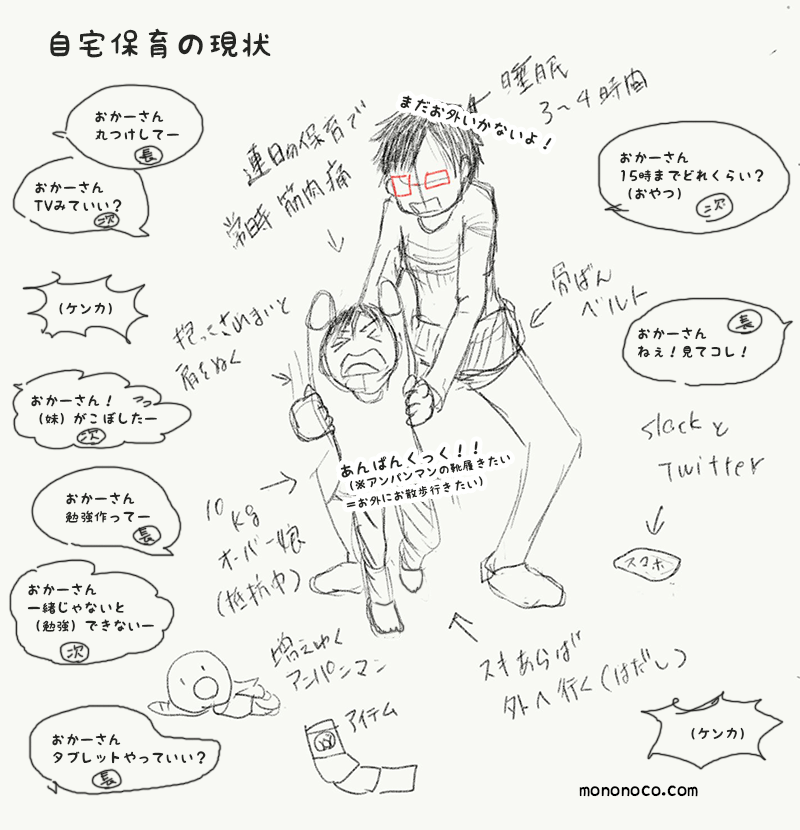 自宅保育の現状
おかーさん
丸つけしてー
長
おかーさん
TVみていい?
次
(ケンカ)
おかーさん!
(妹)がこぼしたー
次
おかーさん
勉強作ってー
長
おかーさん
一緒じゃないと
(勉強)できないー
次
おかーさん
タブレットやっていい?
長
連日の保育で
常時 筋肉痛
抱っこされまいと
肩をぬく
10
kg
オーバー娘
(抵抗中)
増えゆく
アンパンマン
アイテム
まだお外いかないよ!
あんぱんくっく!!
(※アンパンマンの靴履きたい
=お外にお散歩行きたい)
睡眠
3〜4時間
おかーさん
15時までどれくらい?
(おやつ)
次
骨ばん
ベルト
長
おかーさん
ねぇ!見てコレ!
slackと
Twitter
スマホ
スキあらば
外へ行く(はだし)
(ケンカ)
mononoco.com